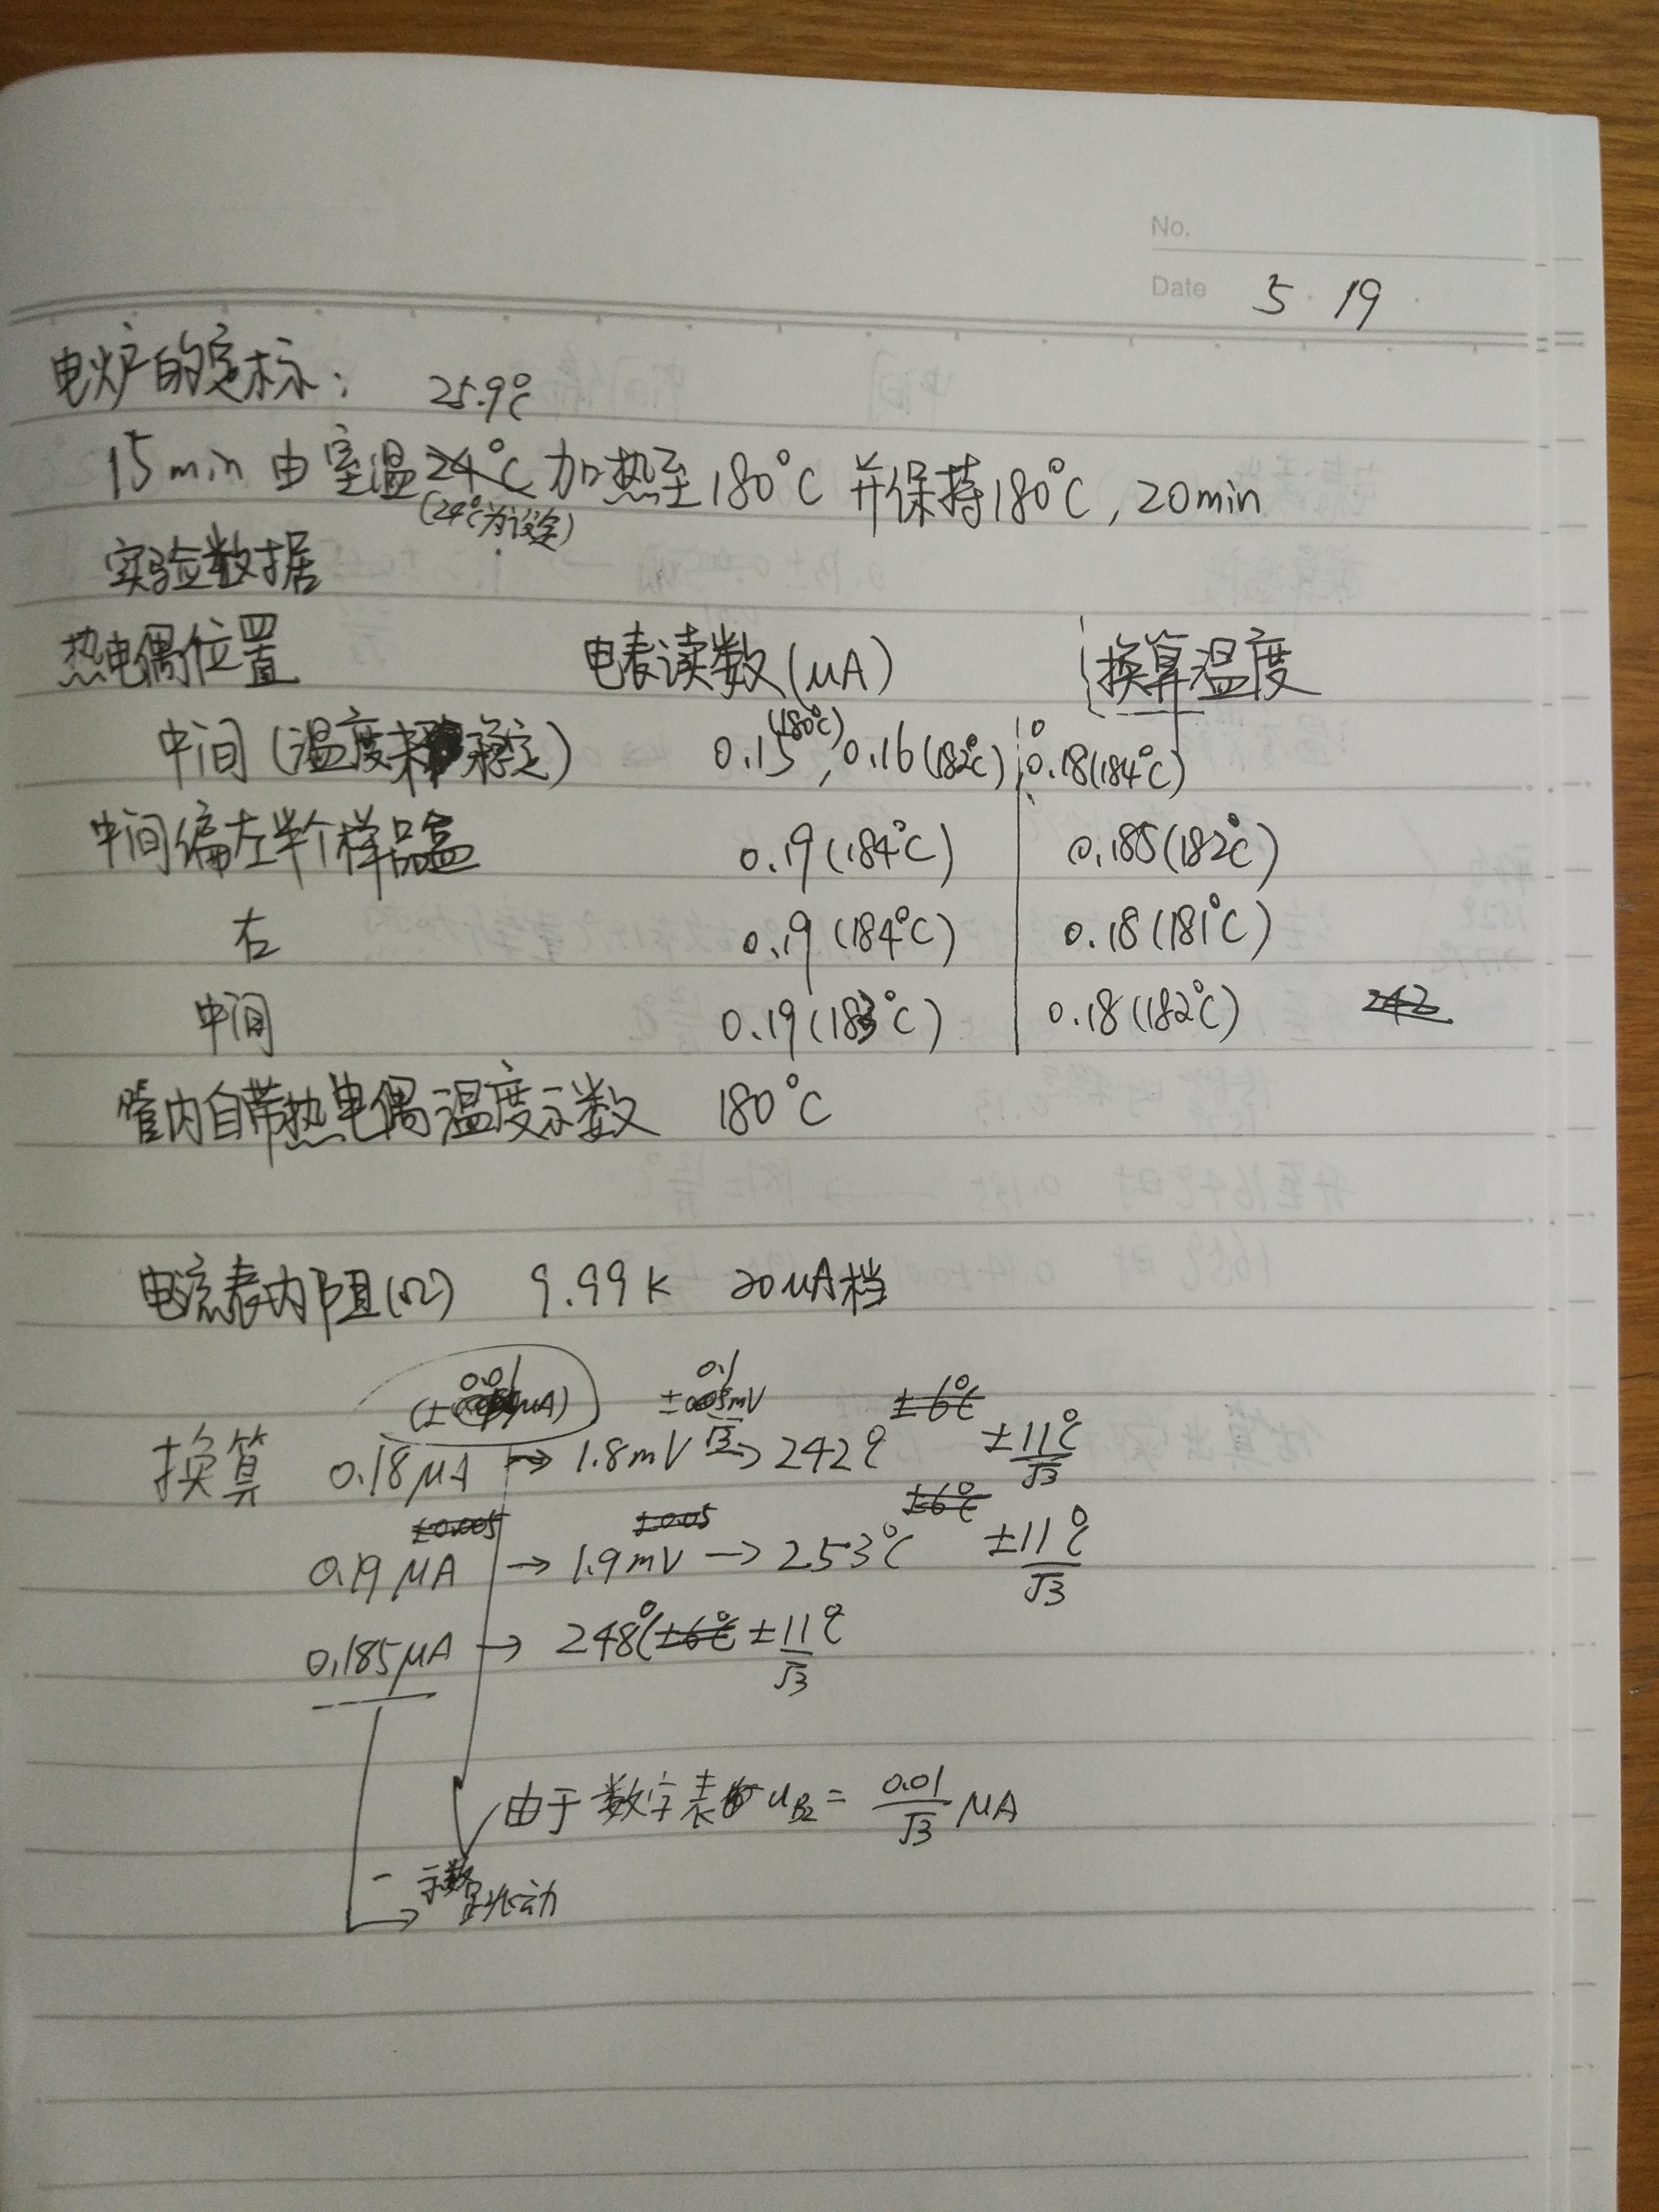 No.
Date 5 19
电炉的定标: 25.9℃
15min 由室温24℃加热至180℃ 并保持180℃, 20min
(24℃为设定)
实验数据
热电偶位置 电表读数(μA) 换算温度
中间(温度未稳定) 0.15(180℃), 0.16(182℃), 0.18(184℃)
中间偏左半个样品盒 0.19(184℃) 0.185(182℃)
右 0.19(184℃) 0.18(181℃)
中间 0.19(183℃) 0.18(182℃) 242
管内自带热电偶温度示数 180℃
电流表内阻(Ω) 9.99k 20μA档
(±0.01μA) ±0.1mV/√3 ±6℃
换算 0.18μA → 1.8mV → 242℃ ±11℃/√3
±0.005 ±0.05 ±6℃
0.19μA → 1.9mV → 253℃ ±11℃/√3
0.185μA → 248℃ ±6℃ ±11℃/√3
由于数字表 u_B2 = 0.01/√3 μA
示数跳动